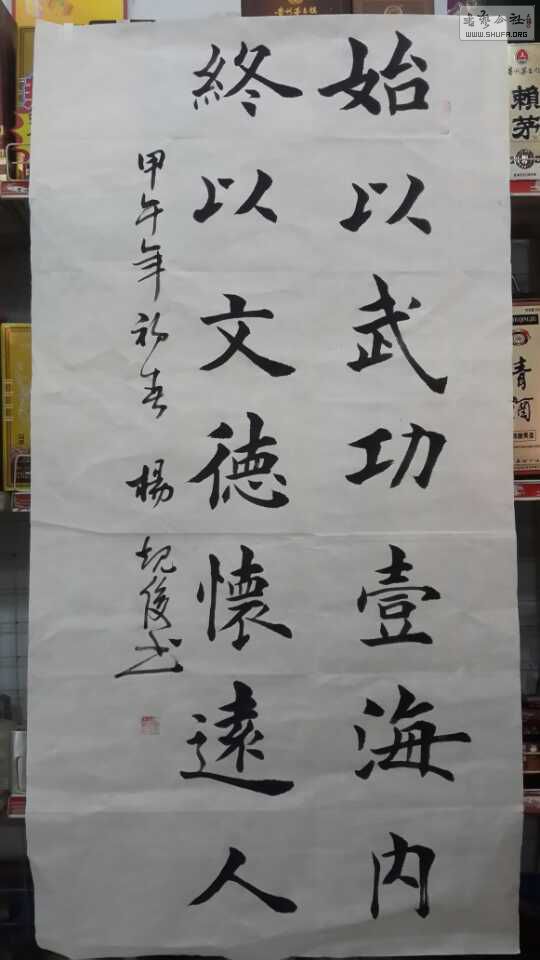 始以武功壹海内
終以文德懷遠人
甲午年初春 楊
俊书
WWW.SHUFA.ORG
賴茅
青酒